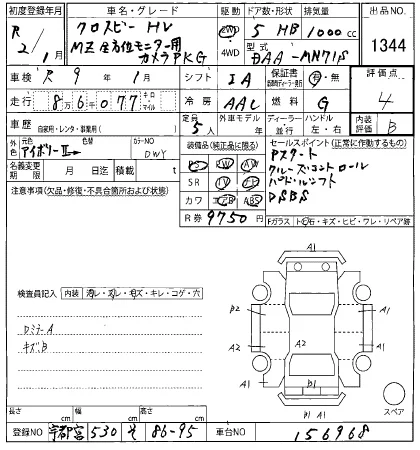 初度登録年月 車名・グレード 駆動 ドア数・形状 排気量 出品NO.
R 2/1月 クロスビー HV 2WD 5 HB 1000cc 1344
MZ 全方位モニター用 カメラPKG 4WD 型式 DAA-MN71S
車検 R 9年 1月 シフト IA 保証書 有・無 評価点
走行 8万6千077 キロ マイル 冷房 AAC 燃料 G 4
車歴 自家用・レンタ・事業用( ) 定員 5人 外車モデル 年 ディーラー 並行 ハンドル 左・右 内装 B
外色 元色 アイボリーⅡ 色替 カラーNO DWY 装備品(純正品に限る) セールスポイント(正常に作動するもの)
名義変更期限 月 日 積載 t PS PW AW Pスタート
注意事項(欠品・修復・不具合箇所および状態) SR TV ナビ クルーズコントロール
カワ エアB ABS パドルシフト
R券 9750円 DSBS
Fガラス トビ石・キズ・ヒビ・ワレ・リペア跡
検査員記入 内装 汚レ・スレ・キズ・キレ・コゲ・穴
DミラーA
キズB
A1
B2 A1
A2 A2 A1
A1 B1
B1 A1
スペア
長さ cm 幅 cm 高さ cm
登録NO 宇都宮 530 そ 86-95 車台NO 156968